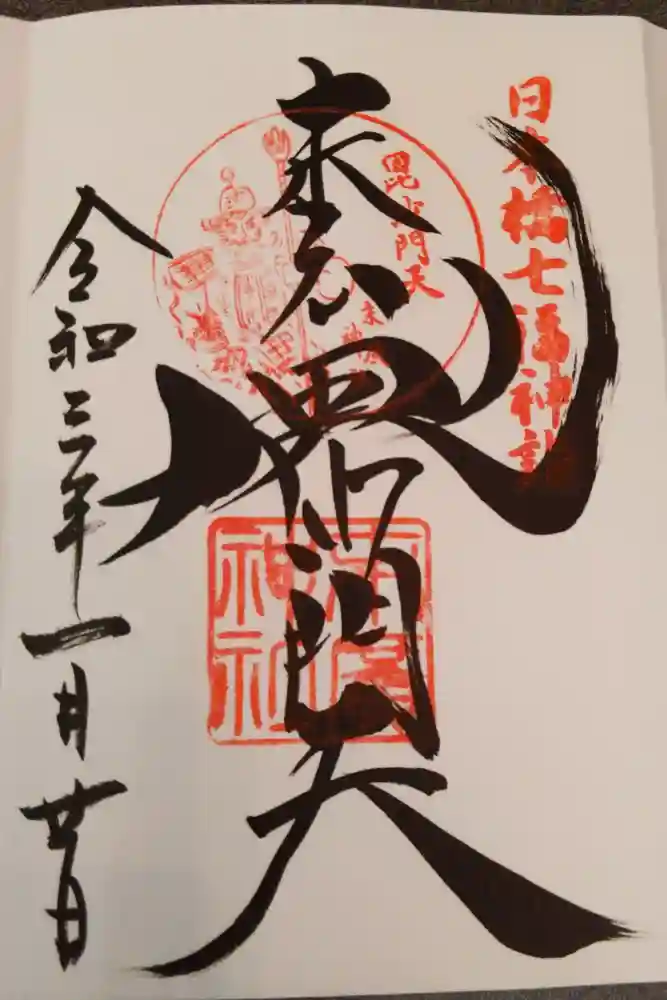 日本橋七福神詣
毘沙門天
末廣神社
奉拝
毘沙門天
末廣神社
令和三年一月廿日